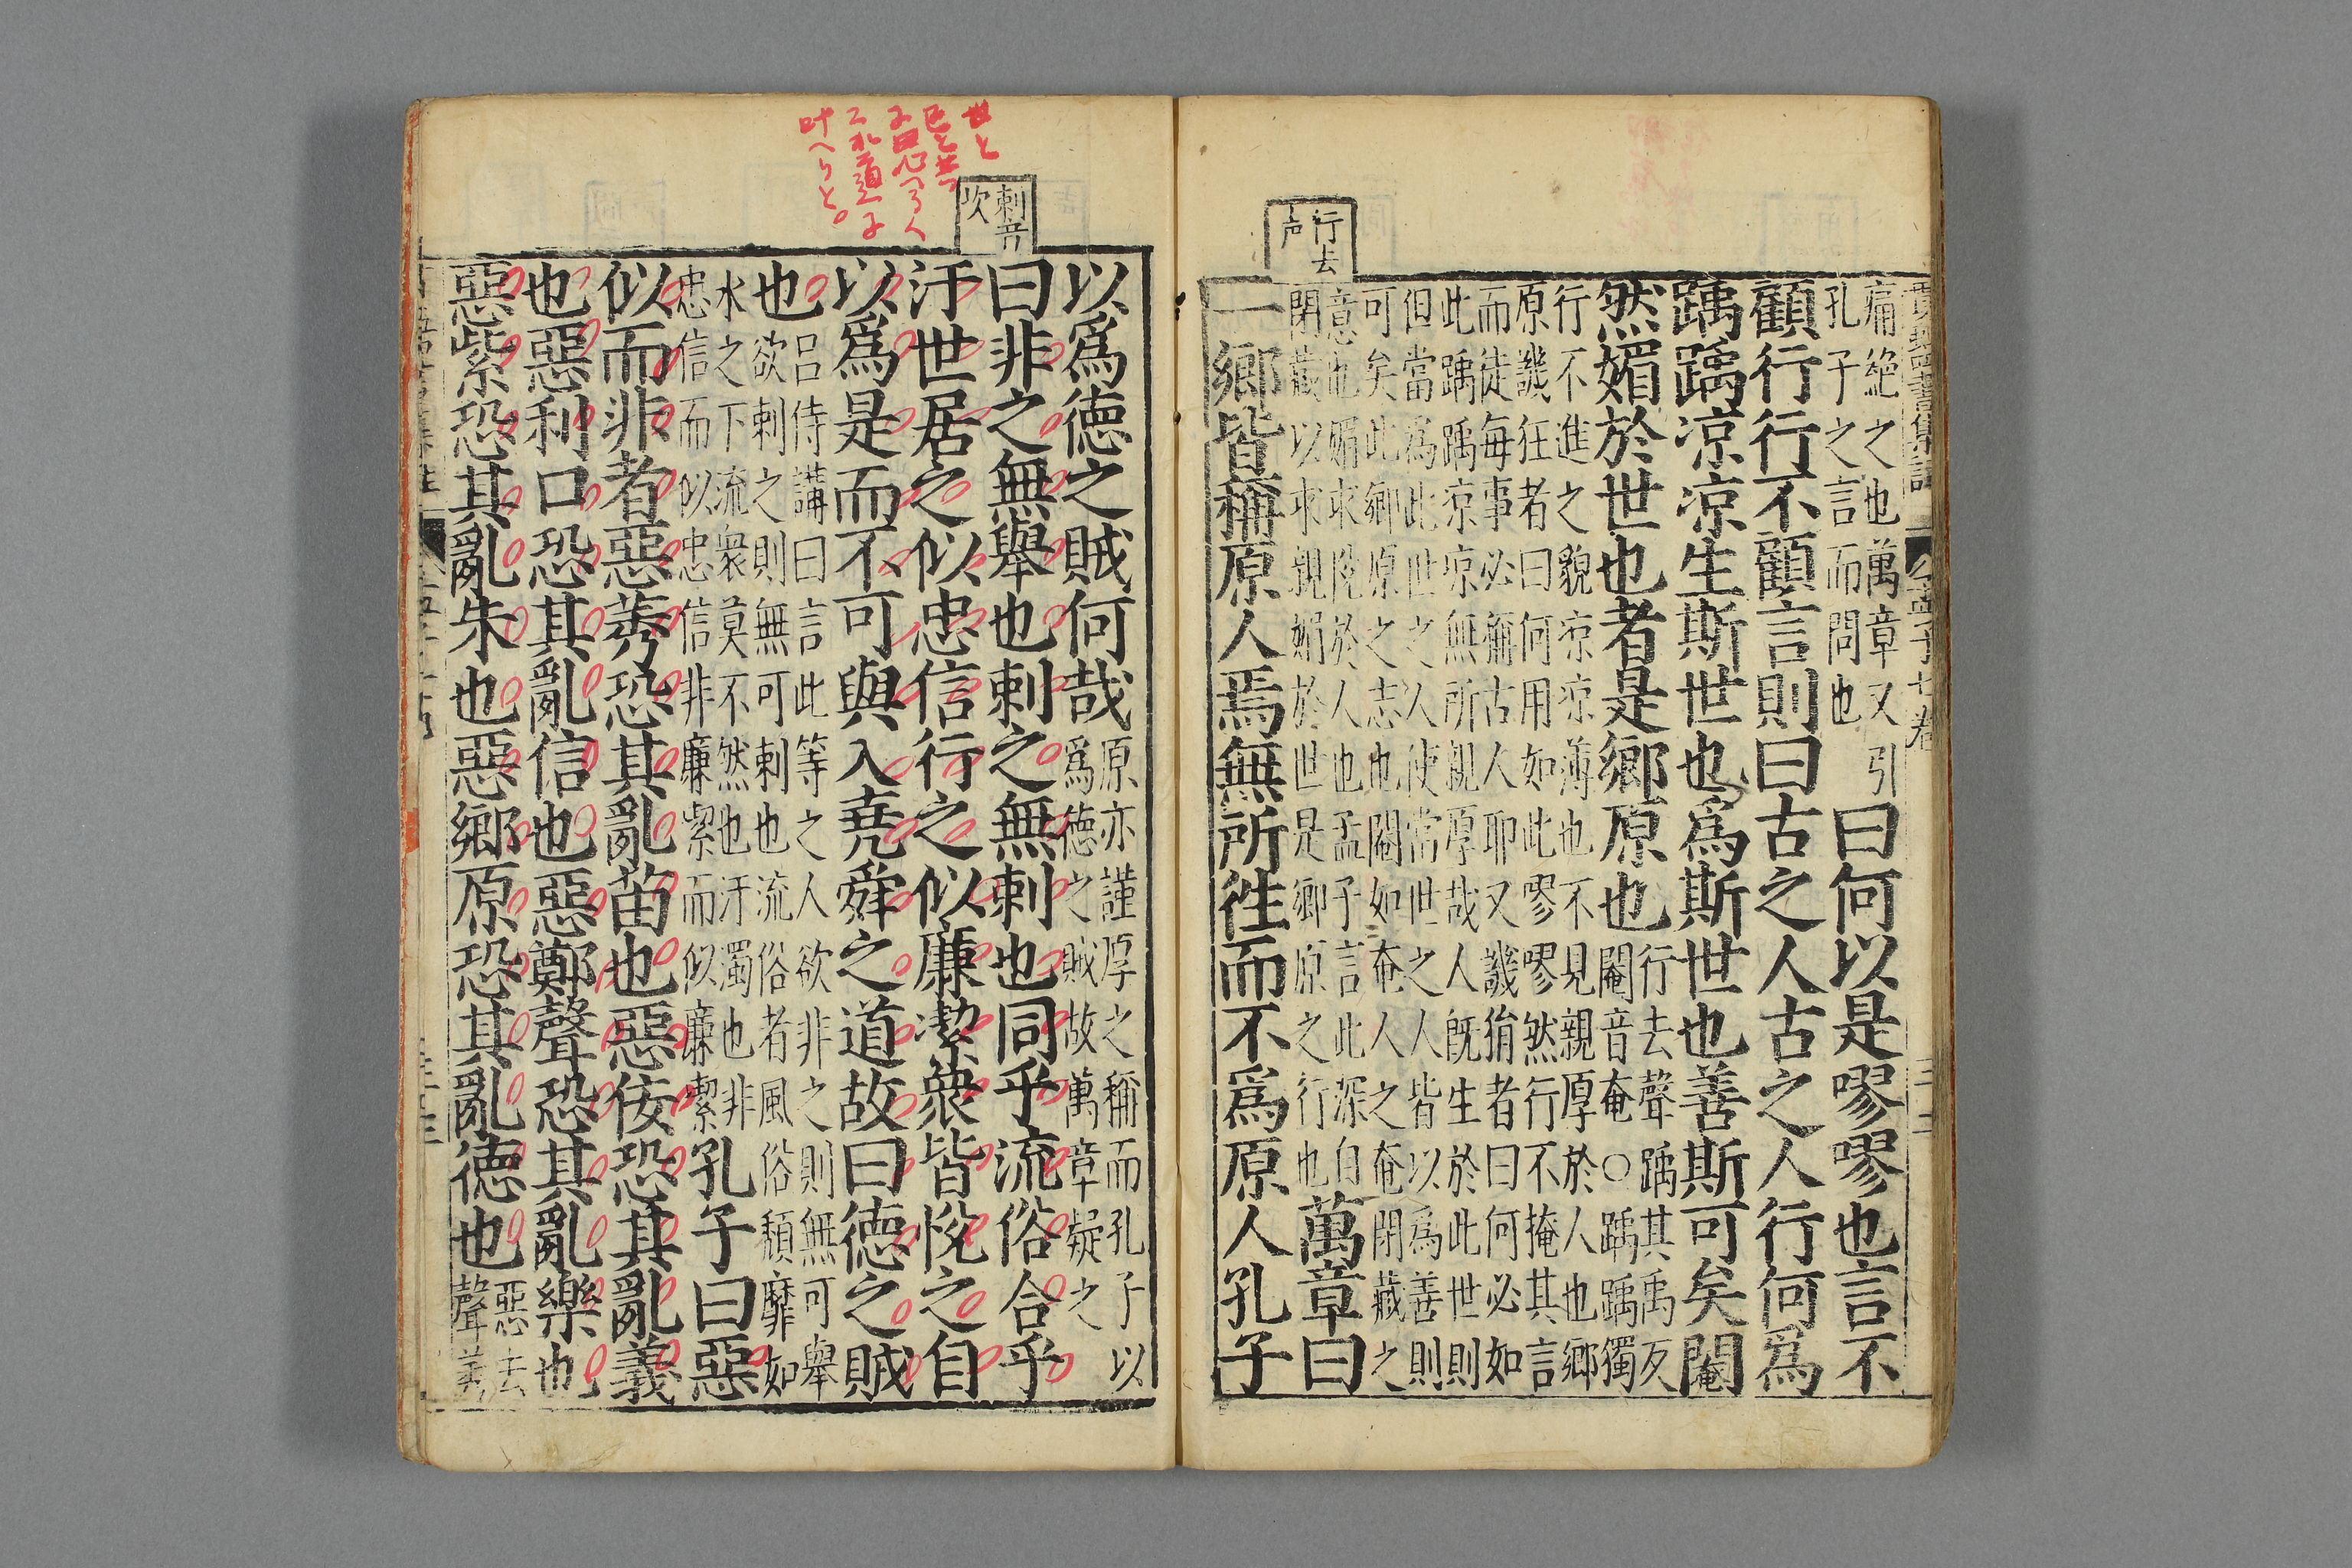 行去
声
痛絶之也萬章又引
孔子之言而問也
曰何以是嘐嘐也言不
顧行行不顧言則曰古之人古之人行何爲
踽踽凉凉生斯世也爲斯世也善斯可矣閹
然媚於世也者是鄉原也
行去聲踽其禹反
閹音奄○踽踽獨
行不進之貌凉凉薄也不見親厚於人也鄉
原譏狂者曰何用如此嘐嘐然行不掩其言
而徒每事必稱古人耶又譏狷者曰何必如
此踽踽凉凉無所親厚哉人既生於此世則
但當爲此世之人使當世之人皆以爲善則
可矣此鄉原之志也閹如奄人之奄閉藏之
意也媚求悅於人也孟子言此深自
閉藏以求親媚於世是鄉原之行也
萬章曰
一鄉皆稱原人焉無所徃而不爲原人孔子
世と
刺音
吹
以爲徳之賊何哉
原亦謹厚之稱而孔子以
爲徳之賊故萬章疑之
曰非之無舉也刺之無刺也同乎流俗合乎
汙世居之似忠信行之似廉潔衆皆悅之自
以爲是而不可與入尭舜之道故曰徳之賊
也
吕侍講曰言此等之人欲非之則無可舉
欲刺之則無可刺也流俗者風俗頽靡如
水之下流衆莫不然也汙濁也非
忠信而似忠信非廉潔而似廉潔
孔子曰惡
似而非者惡莠恐其亂苗也惡佞恐其亂義
也惡利口恐其亂信也惡鄭聲恐其亂樂也
惡紫恐其亂朱也惡鄉原恐其亂徳也
惡去
聲莠